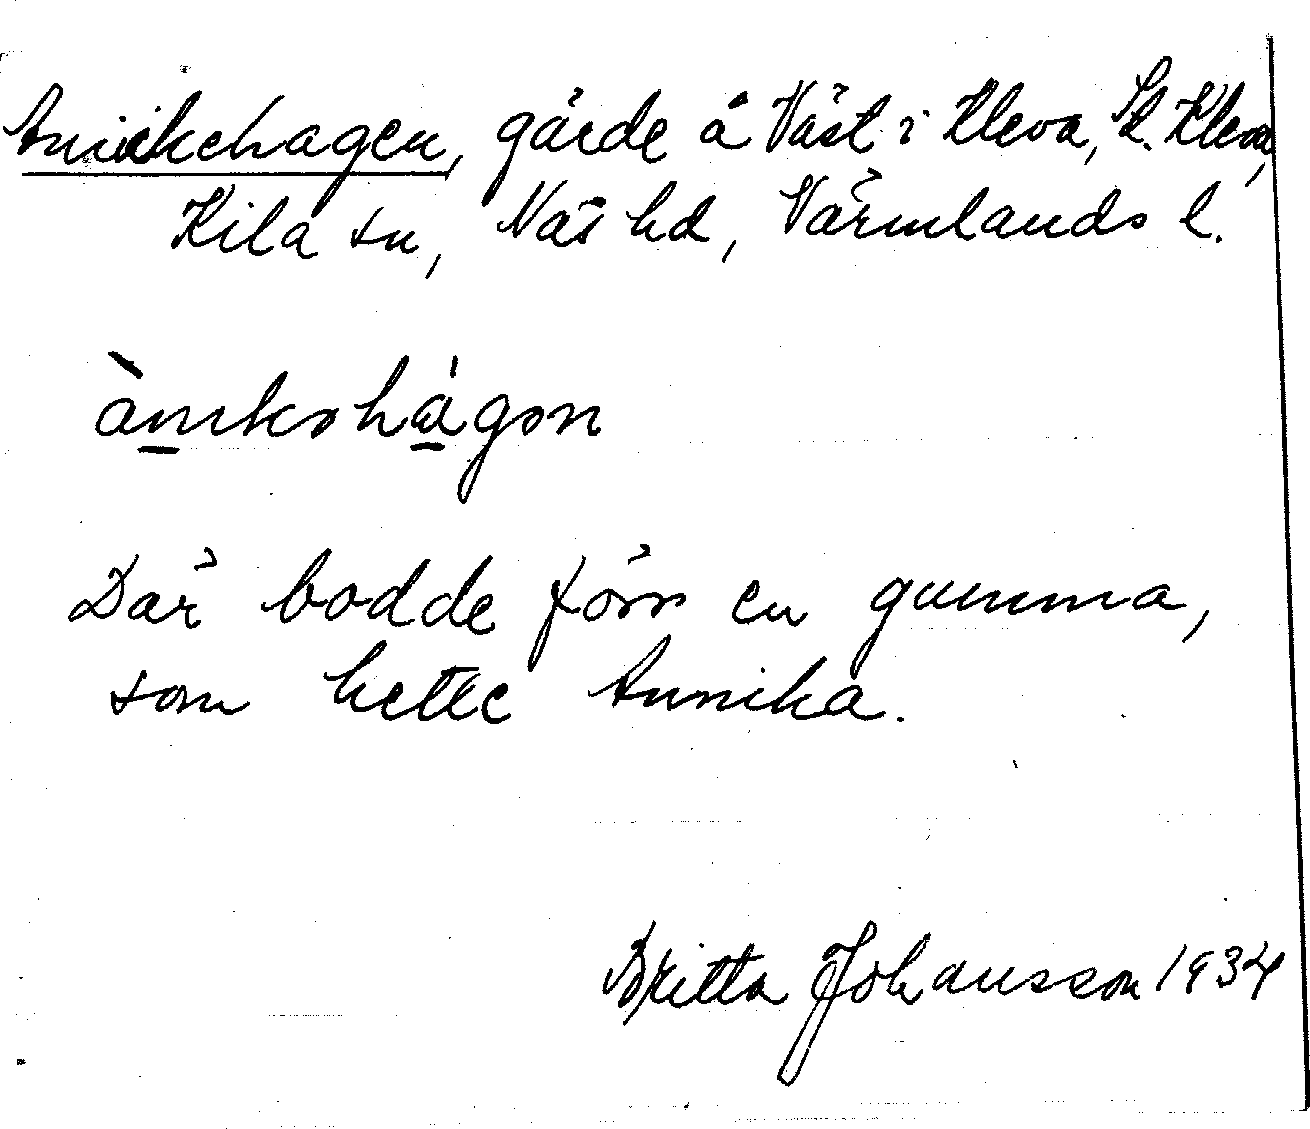 Annickehagen, gärde å Väst i Kleva, St. Kleva,
Kila sn, Näs hd, Värmlands l.
Där bodde förr en gumma,
som hette Annika.
Britta Johansson 1934